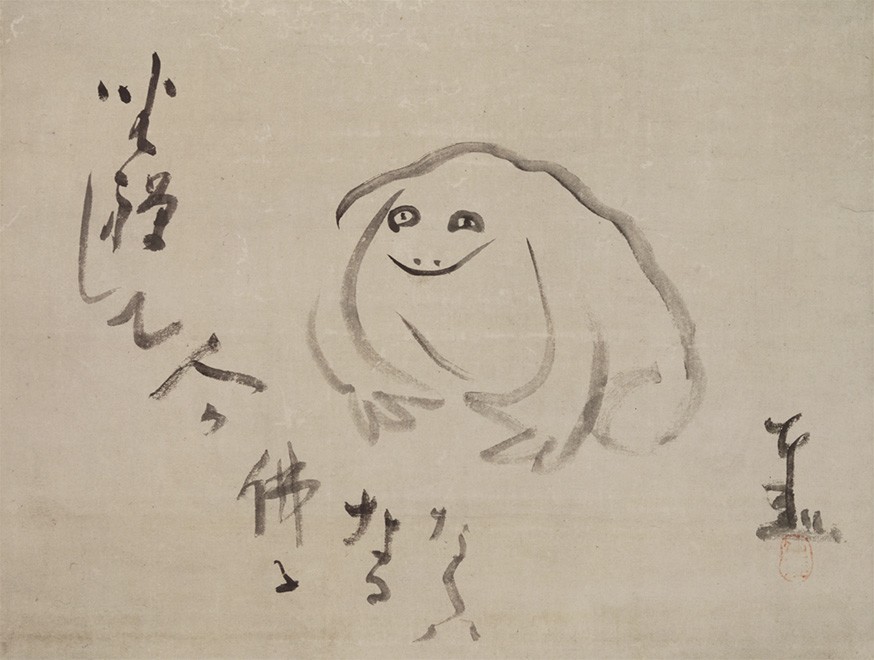 坐禅して
人か
佛に
なる
ならハ